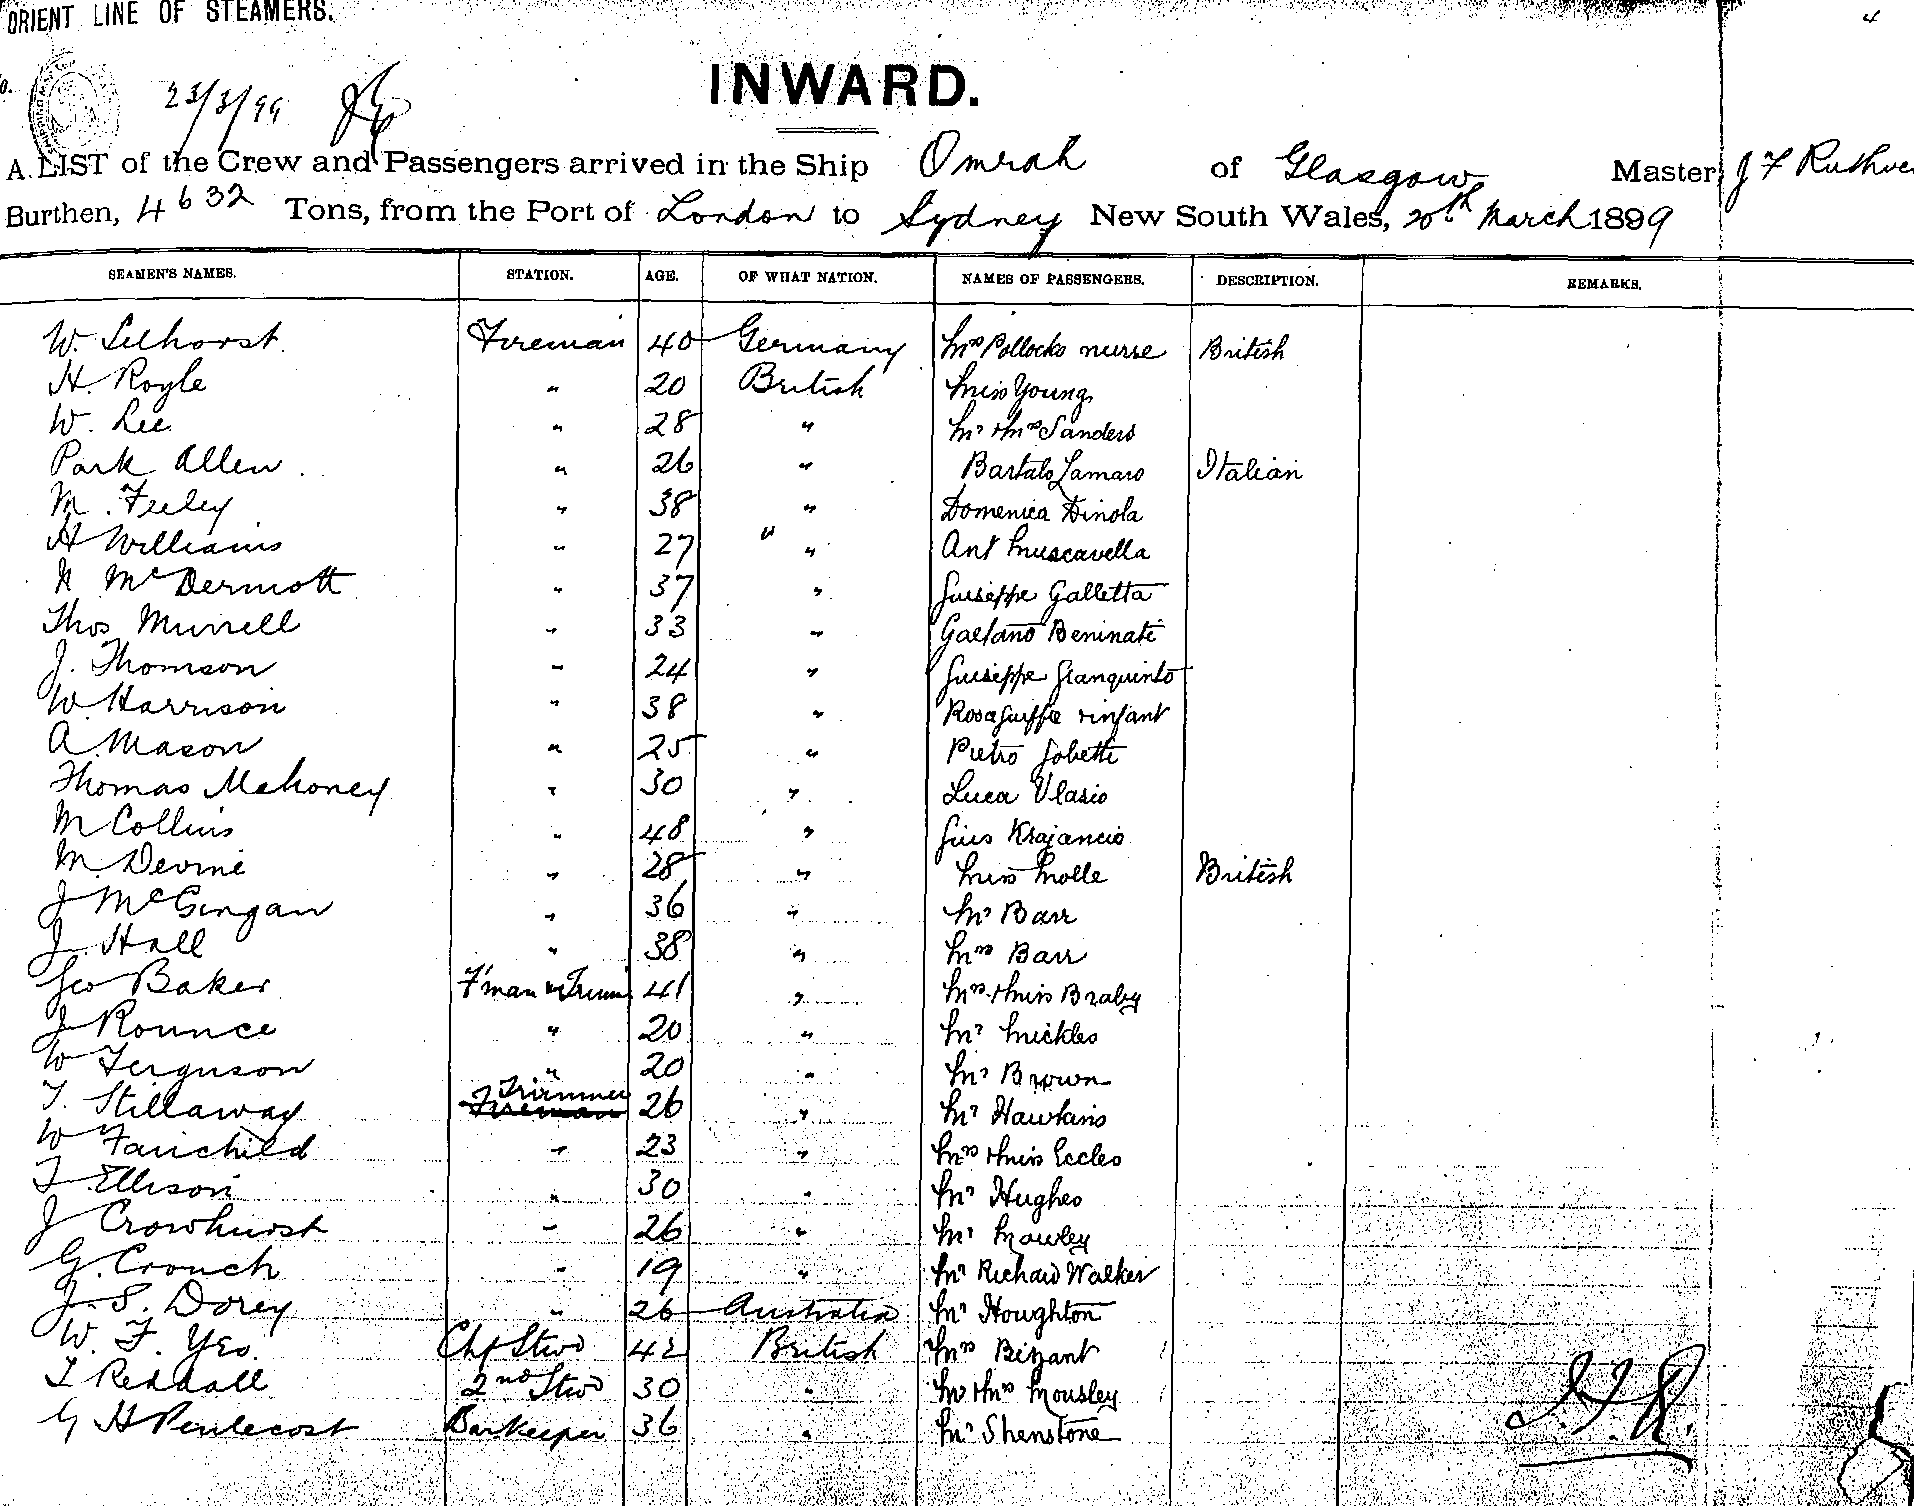 ORIENT LINE OF STEAMERS.
4
23/3/99
INWARD.
A LIST of the Crew and Passengers arrived in the Ship Omrah of Glasgow Master, J F Ruthve
Burthen, 4632 Tons, from the Port of London to Sydney New South Wales, 20th March 1899
SEAMEN'S NAMES. STATION. AGE. OF WHAT NATION. NAMES OF PASSENGERS. DESCRIPTION. REMARKS.
W. Selhorst Fireman 40 Germany Mrs Pollocks nurse British
H. Royle " 20 British Miss Young
W. Lee " 28 " Mr & Mrs Sanders
Park Allen " 26 " Bartalo Lamaro Italian
M. Feeley " 38 " Domenica Dinola
H Williams " 27 " " Ant Muscavella
N McDermott " 37 " Guiseppe Galletta
Thos Murrell " 33 " Gaetano Beninati
J. Thomson " 24 " Guiseppe Gianquinto
W. Harrison " 38 " Rosa & infant
A. Mason " 25 " Pietro Gobetti
Thomas Mahoney " 30 " Luca Vlasio
M Collins " 48 " Gius Krajancio
M Devine " 28 " Miss Molle British
J McGingan " 36 " Mr Barr
J. Hall " 38 " Mrs Barr
Geo Baker F'man & Trimr 41 " Mrs & Miss Braby
J Rounce " 20 " Mr Mickles
W Ferguson " 20 " Mr Brown
T. Stillaway Trimmer Fireman 26 " Mr Hawkins
W Fairchild " 23 " Mrs & Miss Eccles
T Ellison " 30 " Mr Hughes
J Crowhurst " 26 " Mr Mowley
G. Crouch " 19 " Mr Richard Walker
J. S. Dorey " 26 Australia Mr Houghton
W. F. Yeo. Chf Stwd 42 British Mrs Bizant
T Reddall 2nd Stwd 30 " Mr & Mrs Mousley
G H Pentecost Barkeeper 36 " Mr Shenstone
J.F.R.